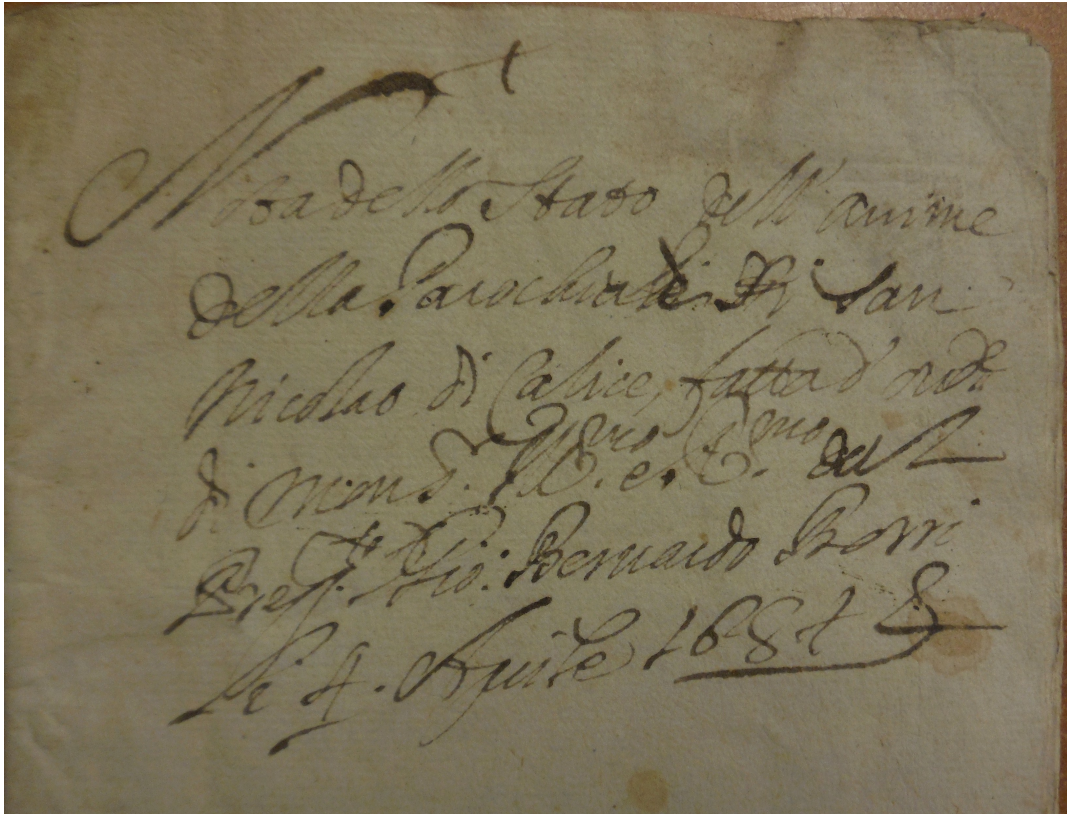 Nota dello Stato dell' anime
della Parochiale di San
Nicolao di Calice, fatta d' ord.e
di Mons.r Ill.mo e R.mo dal
Gio: Bernardo Borri
li 4. Aprile 1684